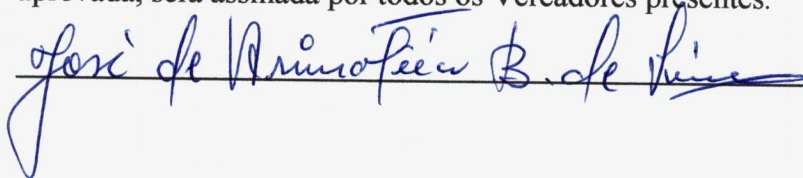 aprovada, será assinada por todos os Vereadores presentes.
José de Arimatéia B. de Lima